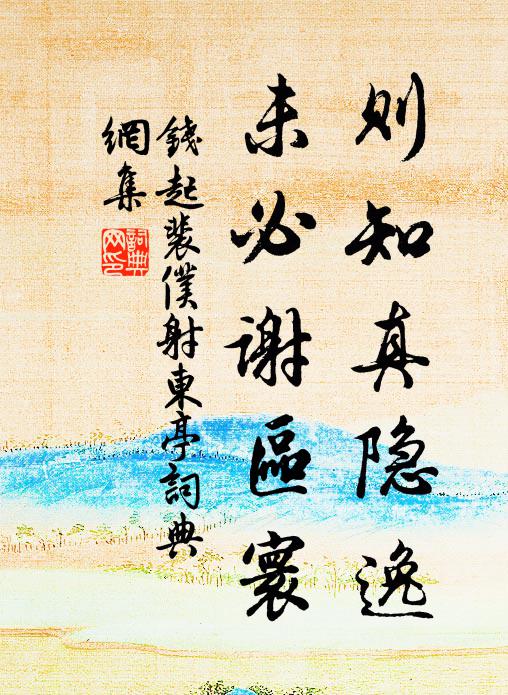 则知真隐逸
未必謝區寰
錢起裴僕射東亭詞典
網集
詞典
网印